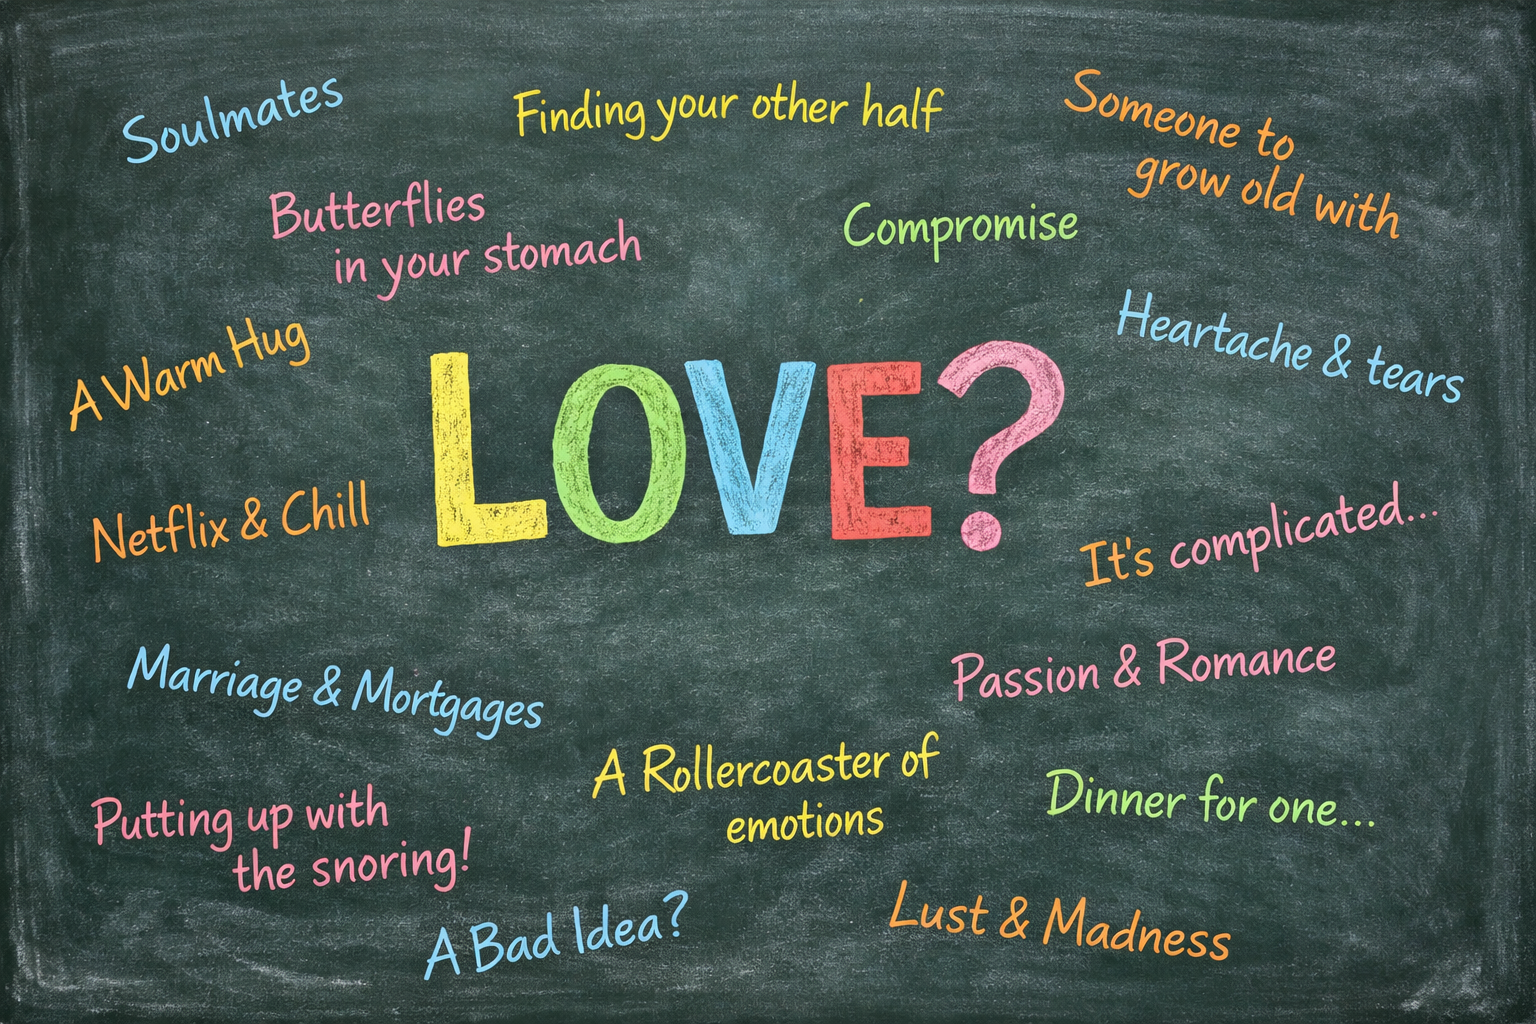 Soulmates
Finding your other half
Someone to
grow old with
Butterflies
in your stomach
Compromise
A Warm Hug
Heartache & tears
LOVE?
Netflix & Chill
It's complicated...
Marriage & Mortgages
Passion & Romance
A Rollercoaster of
emotions
Dinner for one...
Putting up with
the snoring!
A Bad Idea?
Lust & Madness